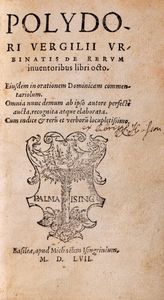 POLYDO
RI VERGILII VR
BINATIS DE RERVM
inuentoribus libri octo.
Eiusdem in orationem Dominicam commen-
tariolum.
Omnia nunc demum ab ipso autore perfectè
aucta, recognita atque elaborata.
Cum indice & rerū et verborū locupletissimo.
PALMA
ISING.
Basileæ, apud Michaëlem Isingrinium,
M. D. LVII.